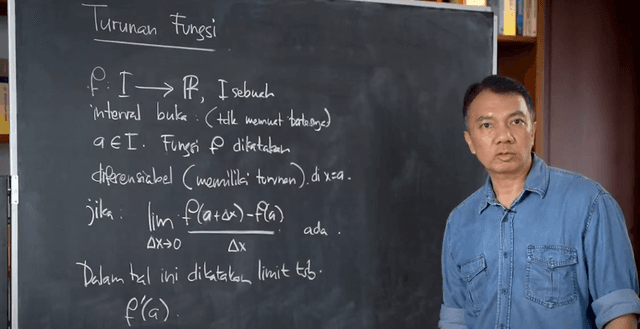 Turunan Fungsi
f: I → ℝ, I sebuah
interval buka. (tdk memuat batasnya)
a ∈ I. Fungsi f dikatakan
diferensiabel (memiliki turunan). di x=a.
jika: lim Δx→0 (f(a+Δx) - f(a))/Δx ada.
Dalam hal ini dikatakan limit tsb.
f'(a).